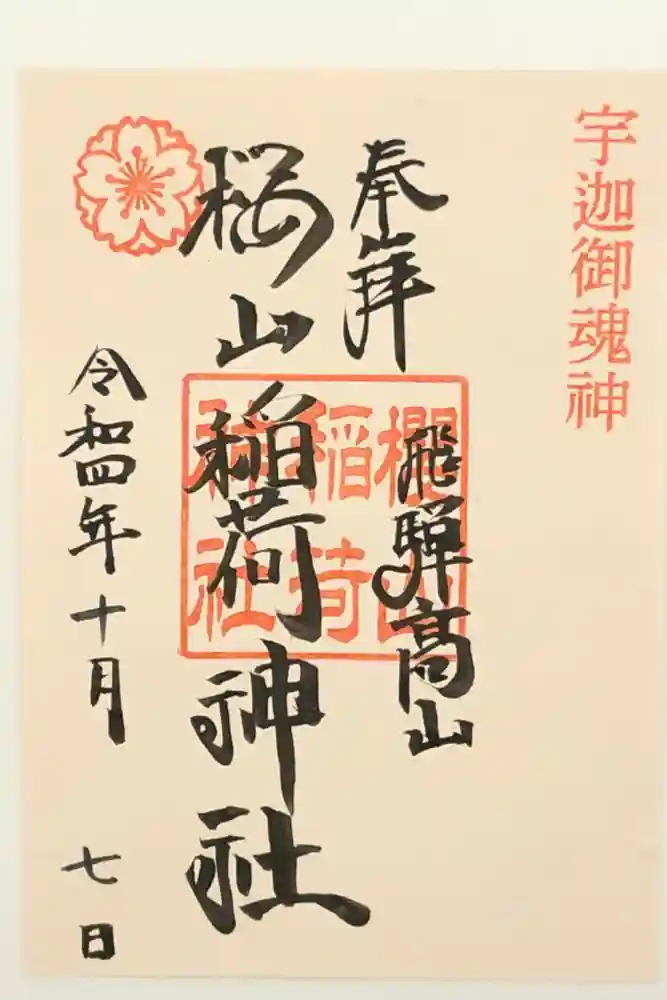 宇迦御魂神
奉拝
飛騨高山
櫻山
稲荷
神社
桜山稲荷神社
令和四年十月七日